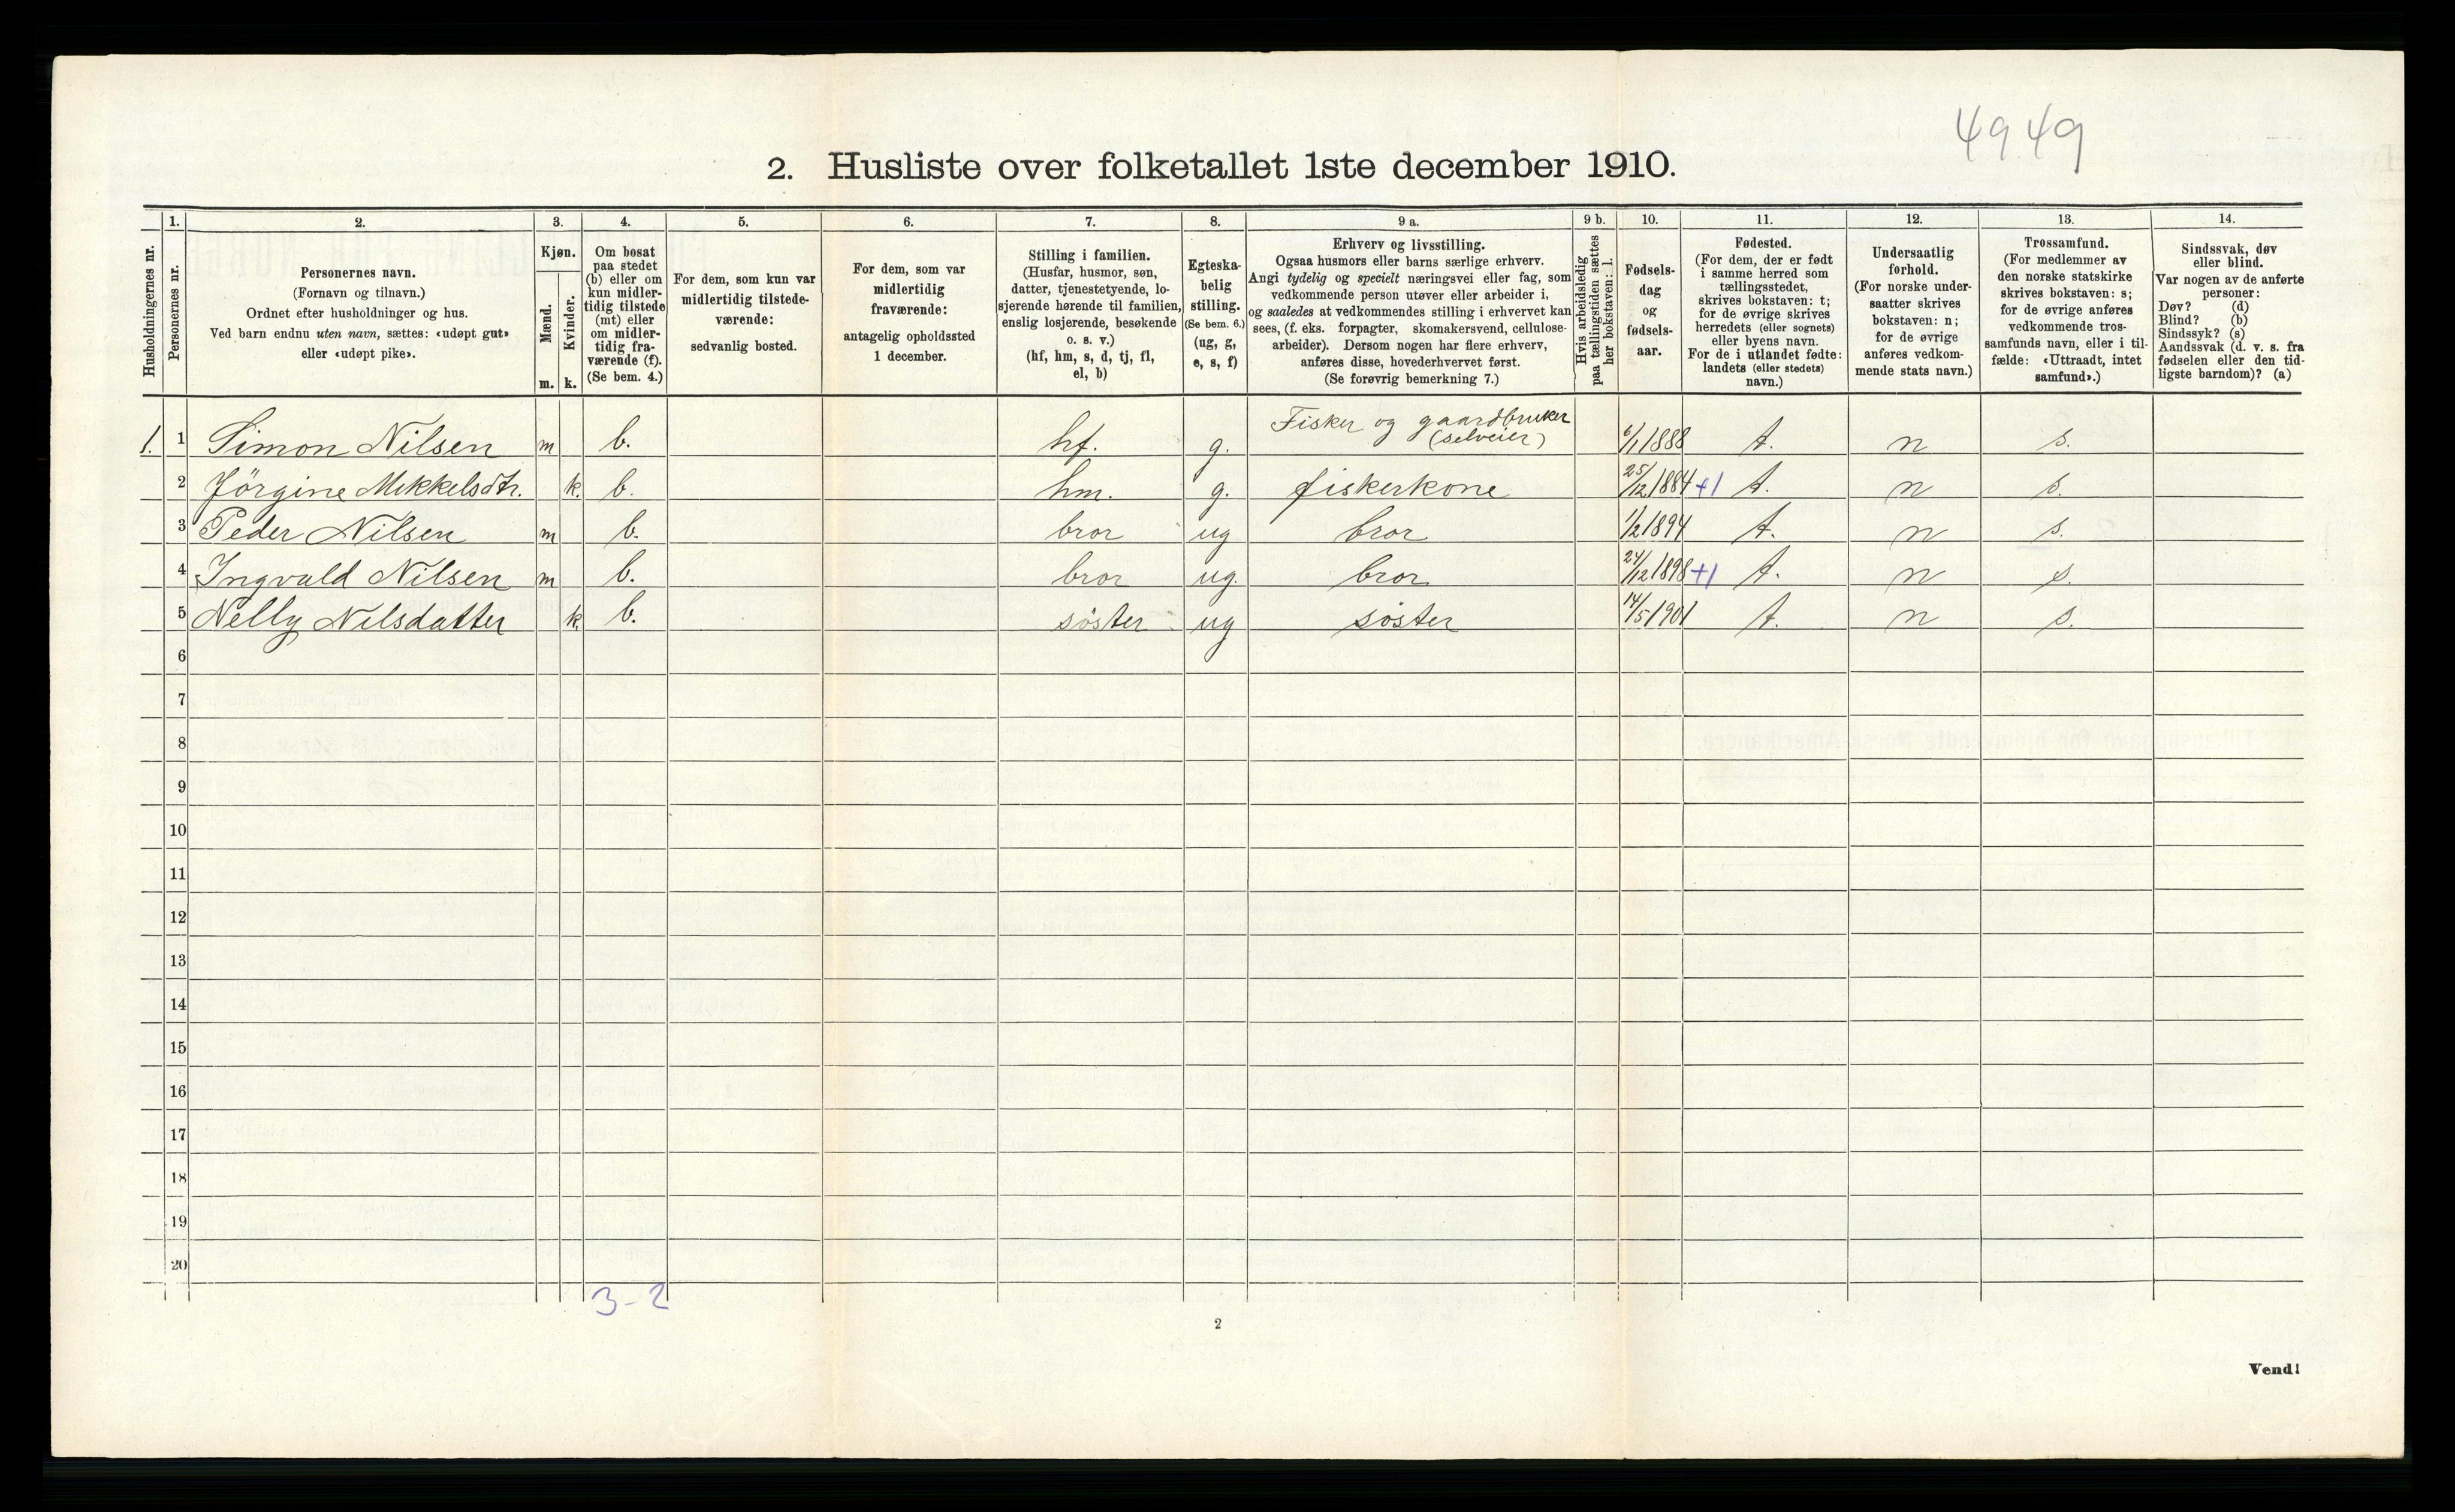 4949
2. Husliste over folketallet 1ste december 1910.
Husholdningernes nr.
1.
Personernes nr.
2.
Personernes navn.
(Fornavn og tilnavn.)
Ordnet efter husholdninger og hus.
Ved barn endnu uten navn, sættes: «udøpt gut»
eller «udøpt pike».
3.
Kjøn.
Mænd.
Kvinder.
m. k.
4.
Om bosat
paa stedet
(b) eller om
kun midler-
tidig tilstede
(mt) eller
om midler-
tidig fra-
værende (f).
(Se bem. 4.)
5.
For dem, som kun var
midlertidig tilstede-
værende:
sedvanlig bosted.
6.
For dem, som var
midlertidig
fraværende:
antagelig opholdssted
1 december.
7.
Stilling i familien.
(Husfar, husmor, søn,
datter, tjenestetyende, lo-
sjerende hørende til familien,
enslig losjerende, besøkende
o. s. v.)
(hf, hm, s, d, tj, fl,
el, b)
8.
Egteska-
belig
stilling.
(Se bem. 6.)
(ug, g,
e, s, f)
9 a.
Erhverv og livsstilling.
Ogsaa husmors eller barns særlige erhverv.
Angi tydelig og specielt næringsvei eller fag, som
vedkommende person utøver eller arbeider i,
og saaledes at vedkommendes stilling i erhvervet kan
sees, (f. eks. forpagter, skomakersvend, cellulose-
arbeider). Dersom nogen har flere erhverv,
anføres disse, hovederhvervet først.
(Se forøvrig bemerkning 7.)
9 b.
Hvis arbeidsledig
paa tællingstiden sættes
her bokstaven: l.
10.
Fødsels-
dag
og
fødsels-
aar.
11.
Fødested.
(For dem, der er født
i samme herred som
tællingsstedet,
skrives bokstaven: t;
for de øvrige skrives
herredets (eller sognets)
eller byens navn.
For de i utlandet fødte:
landets (eller stedets)
navn.)
12.
Undersaatlig
forhold.
(For norske under-
saatter skrives
bokstaven: n;
for de øvrige
anføres vedkom-
mende stats navn.)
13.
Trossamfund.
(For medlemmer av
den norske statskirke
skrives bokstaven: s;
for de øvrige anføres
vedkommende tros-
samfunds navn, eller i til-
fælde: «Uttraadt, intet
samfund».)
14.
Sindssvak, døv
eller blind.
Var nogen av de anførte
personer:
Døv? (d)
Blind? (b)
Sindssyk? (s)
Aandssvak (d. v. s. fra
fødselen eller den tid-
ligste barndom)? (a)
1. 1 Simon Nilsen m b. hf. g. Fisker og gaardbruker (selveier) 6/1 1888 t. n s.
2 Jörgine Mikkelsdtr. k. b. hm. g. fiskerkone 25/12 1884 +1 t. n s.
3 Peder Nilsen m b. bror ug bror 1/2 1894 t. n s.
4 Ingvald Nilsen m b. bror ug. bror 24/12 1898 +1 t. n s.
5 Nelly Nilsdatter k. b. söster ug söster 14/5 1901 t. n s.
6
7
8
9
10
11
12
13
14
15
16
17
18
19
20
3-2
2
Vend!